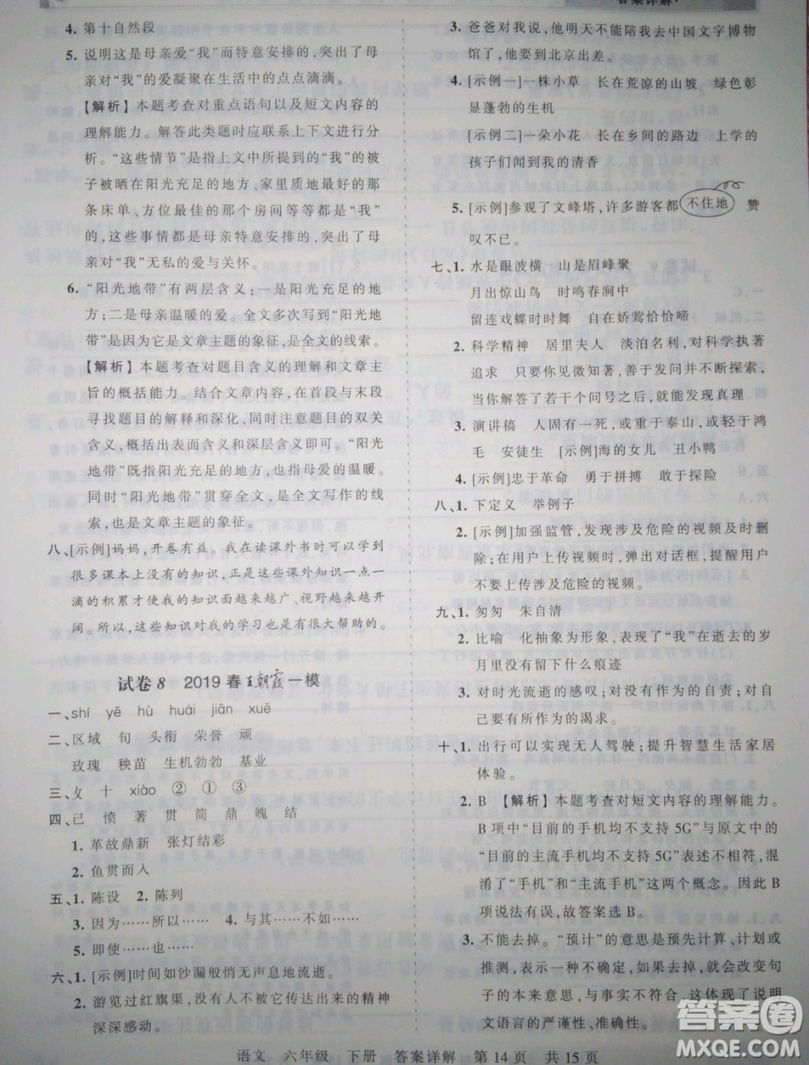 答案详解·
4. 第十自然段
5. 说明这是母亲爱“我”而特意安排的，突出了母
亲对“我”的爱凝聚在生活中的点点滴滴。
【解析】本题考查对重点语句以及短文内容的
理解能力。解答此类题时应联系上下文进行
分析。“这些情节”是指上文中所说的“我”的被
子被晒在阳光充足的地方、家里质地最好的那
条床单、方位最好的那个房间等等都是“我”
的，这些事情都是母亲特意安排的，突出了母
亲对“我”无私的爱与关怀。
6. “阳光地带”有两层含义：一是阳光充足的地
方；二是母亲温暖的爱。全文多次写到“阳光地
带”是因为它是文章主题的象征，是全文的线索。
【解析】本题考查对题目含义的理解和文章主
旨的概括能力。结合文章内容，在首段与末段
寻找题目的解释和深化，同时分析题目的双关
含义，概括出表层含义和深层含义即可。“阳光
地带”既指阳光充足的地方，也指母爱的温暖。
同时“阳光地带”贯穿全文，是全文写作的线
索，也是文章主题的象征。
八、[示例]妈妈，开卷有益。我在读课外书时可以学到
很多课本上没有的知识，而且这些课外知识一点一点
的积累才使我的知识面越来越广、视野越来越开
阔。所以，这些知识对我的学习也是有很大帮助的。
试卷8 2019春王朝霞一模
一、shí yě hù huái jiān xuē
二、区域 旬 头衔 荣誉 顽
玫瑰 秧苗 生机勃勃 基业
三、攵 十 xiào ② ① ③
四、己 愤 著 贯 简 鼎 魄 结
1. 革故鼎新 张灯结彩
2. 鱼贯而入
五、1. 陈设 2. 陈列
3. 因为……所以…… 4. 与其……不如……
5. 即使……也……
六、1. [示例]时间如沙漏般悄无声息地流逝。
2. 游览过红旗渠，没有人不被它传达出来的精神
深深感动。
3. 爸爸对我说，他明天不能陪我去中国文字博物
馆了，他要到北京出差。
4. [示例一]一株小草 长在荒凉的山坡 绿色彰
显蓬勃的生机
[示例二]一朵小花 长在乡间的路边 上学的
孩子们闻到我的清香
5. [示例]参观了文峰塔，许多游客都不住地 赞
叹不已。
七、1. 水是眼波横 山是眉峰聚
月出惊山鸟 时鸣春涧中
留连戏蝶时时舞 自在娇莺恰恰啼
2. 科学精神 居里夫人 淡泊名利，对科学执著
追求 只要你见微知著，善于发问并不断探索，
当你解答了若干个问号之后，就能发现真理
3. 演讲稿 人固有一死，或重于泰山，或轻于鸿
毛 安徒生 [示例]海的女儿 丑小鸭
4. [示例]忠于革命 勇于拼搏 敢于探险
八、1. 下定义 举例子
2. [示例]加强监管，发现涉及危险的视频及时删
除；在用户上传视频时，弹出对话框，提醒用户
不要上传涉及危险的视频。
九、1. 匆匆 朱自清
2. 比喻 化抽象为形象，表现了“我”在逝去的岁
月里没有留下什么痕迹
3. 对时光流逝的感叹，对以往没有作为的愧疚，
对以后要有所作为的渴求。
十、1. 出行可以实现无人驾驶；提升智慧生活家居
体验。
2. B 【解析】本题考查对短文内容的理解能力。
B项中“目前的手机均不支持5G”与原文中的
“目前的主流手机均不支持5G”表述不同，混
淆了“手机”和“主流手机”两个概念，因此B
项说法有误，故答案选B。
3. 不能去掉。“预计”的意思是预先计算，计划或
推测，表示一种不确定，去掉后就会改变句子
的本来意思，与事实不符。这体现了说明文
语言的严谨性、准确性。
语文 六年级 下册 答案详解 第14页 共15页
答案圈
MXQE.COM